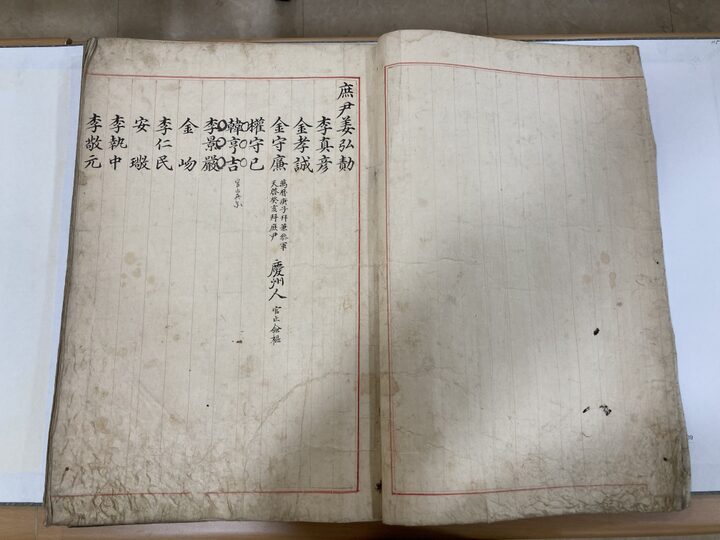 庶尹姜弘勣
李真彦
金孝誠
金守廉 萬曆庚子拜兼參軍 天啓癸亥拜庶尹 慶州人 官止僉樞
權守己
韓亨吉
李景嚴
金 吻
李仁民
安 璥
李執中
李敬元